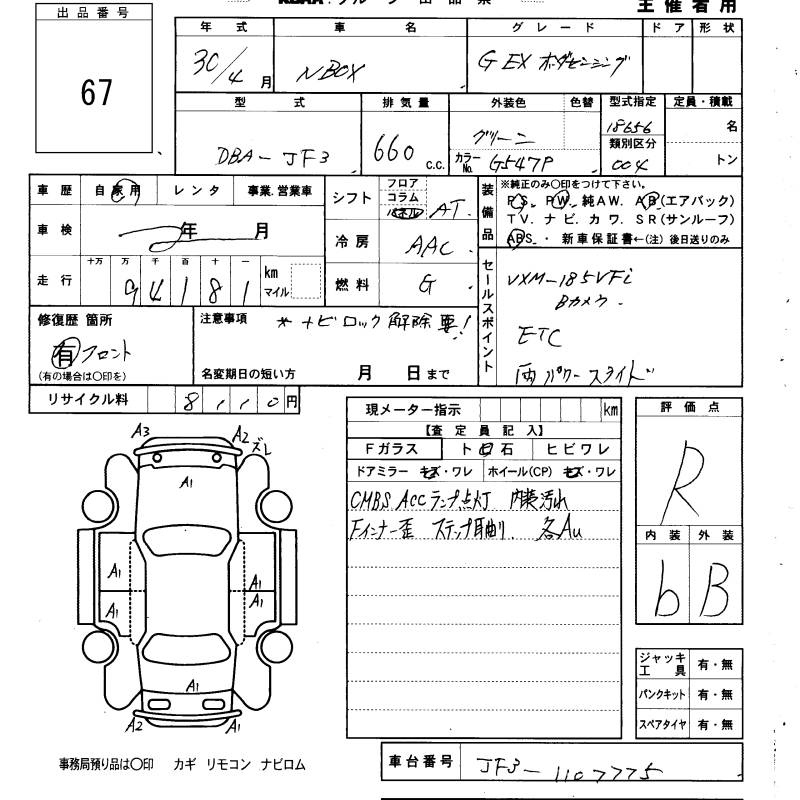 主催者用
出品番号
67
年式 車名 グレード ドア 形状
30/4月 NBOX G EX ホンダセンシング
型式 排気量 外装色 色替 型式指定 定員・積載
DBA-JF3 660 c.c. グリーン 18656 名
カラーNo. G547P 類別区分 004 トン
車歴 自家用 レンタ 事業.営業車
車検 年 月
走行 十万 万 千 百 十 一 km マイル
94181
シフト フロア コラム パネル AT
冷房 AAC
燃料 G
装備品 ※純正のみ〇印をつけて下さい。
PS. PW. 純AW. AB(エアバック)
TV. ナビ. カワ. SR(サンルーフ)
ABS. ・ 新車保証書←(注) 後日送りのみ
セールスポイント
VXM-185VFi
Bカメラ
ETC
両パワースライド
修復歴 箇所
有 フロント
(有の場合は〇印を)
注意事項 *ナビロック解除要!
名変期日の短い方 月 日まで
リサイクル料 8,110円
現メーター指示 km
【査定員記入】
Fガラス 飛石 ヒビワレ
ドアミラー キズ・ワレ ホイール(CP) キズ・ワレ
CMBS ACCランプ点灯 内装汚れ
Fインナー歪 ステップ亀裂. 各AU
評価点
R
内装 外装
b B
A3 A2 ズレ
A1
A1 A1
A1 A1
A1
A2 A1
ジャッキ工具 有・無
パンクキット 有・無
スペアタイヤ 有・無
事務局預り品は〇印 カギ リモコン ナビロム
車台番号 JF3-1107775